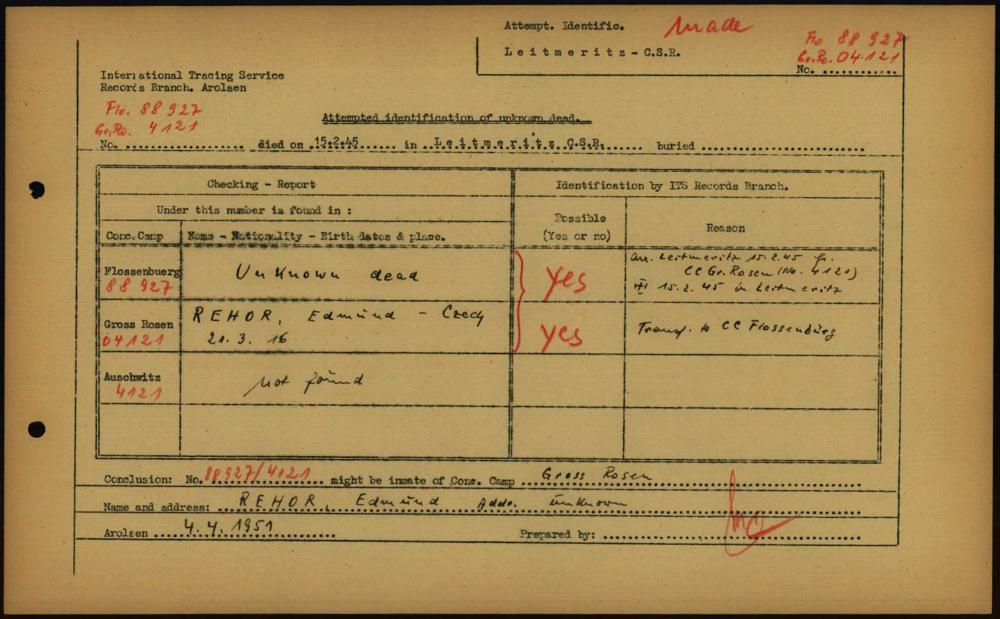 Attempt. Identific. Made
Leitmeritz - C.S.R.
Flo 88 927
Gr.Ro. 04.121
No. ............
International Tracing Service
Records Branch. Arolsen
Flo. 88 927
Gr.Ro. 4121
Attempted identification of unknown dead.
No. .................. died on .15.2.45...... in ..Leitmeritz C.S.R....... buried ..........................
Checking - Report
Identification by ITS Records Branch.
Under this number is found in :
Possible
(Yes or no)
Reason
Conc.Camp
Name - Nationality - Birth dates & place.
Flossenbuerg
88 927
Unknown dead
yes
arr. Leitmeritz 15.2.45 fr.
CC Gr. Rosen (No. 4121)
15.2.45 in Leitmeritz
Gross Rosen
04121
REHOR, Edmund - Czech
21.3.16
yes
Transf. to CC Flossenbürg
Auschwitz
4121
not found
Conclusion: No. 88927/4121 might be inmate of Conc. Camp Gross Rosen
Name and address: REHOR, Edmund Addr. unknown
Arolsen 4.4.1951
Prepared by: ..........................